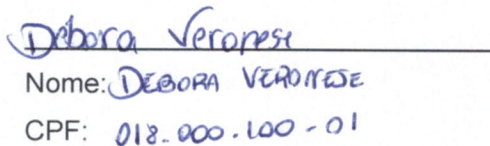 Debora Veronese
Nome: DEBORA VERONESE
CPF: 018.000.100-01